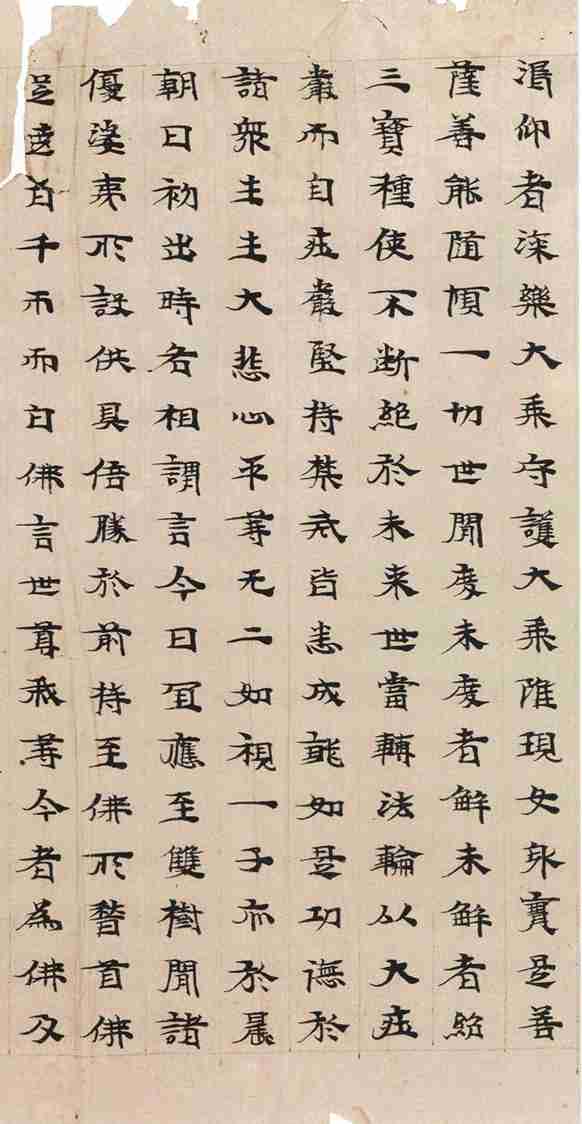 渴仰者深樂大乘守護大乘雖現女身實是善
薩善能隨順一切世間度未度者解未解者紹
三寶種使不断絕於未來世當轉法輪以大莊
嚴而自莊嚴堅持禁戒皆悉成就如是功德於
諸眾生生大悲心平等无二如視一子亦於晨
朝日初出時各相謂言今日宜應至雙樹間諸
優婆夷所設供具倍勝於前持至佛所稽首佛
足遶百千帀而白佛言世尊我等今者為佛及